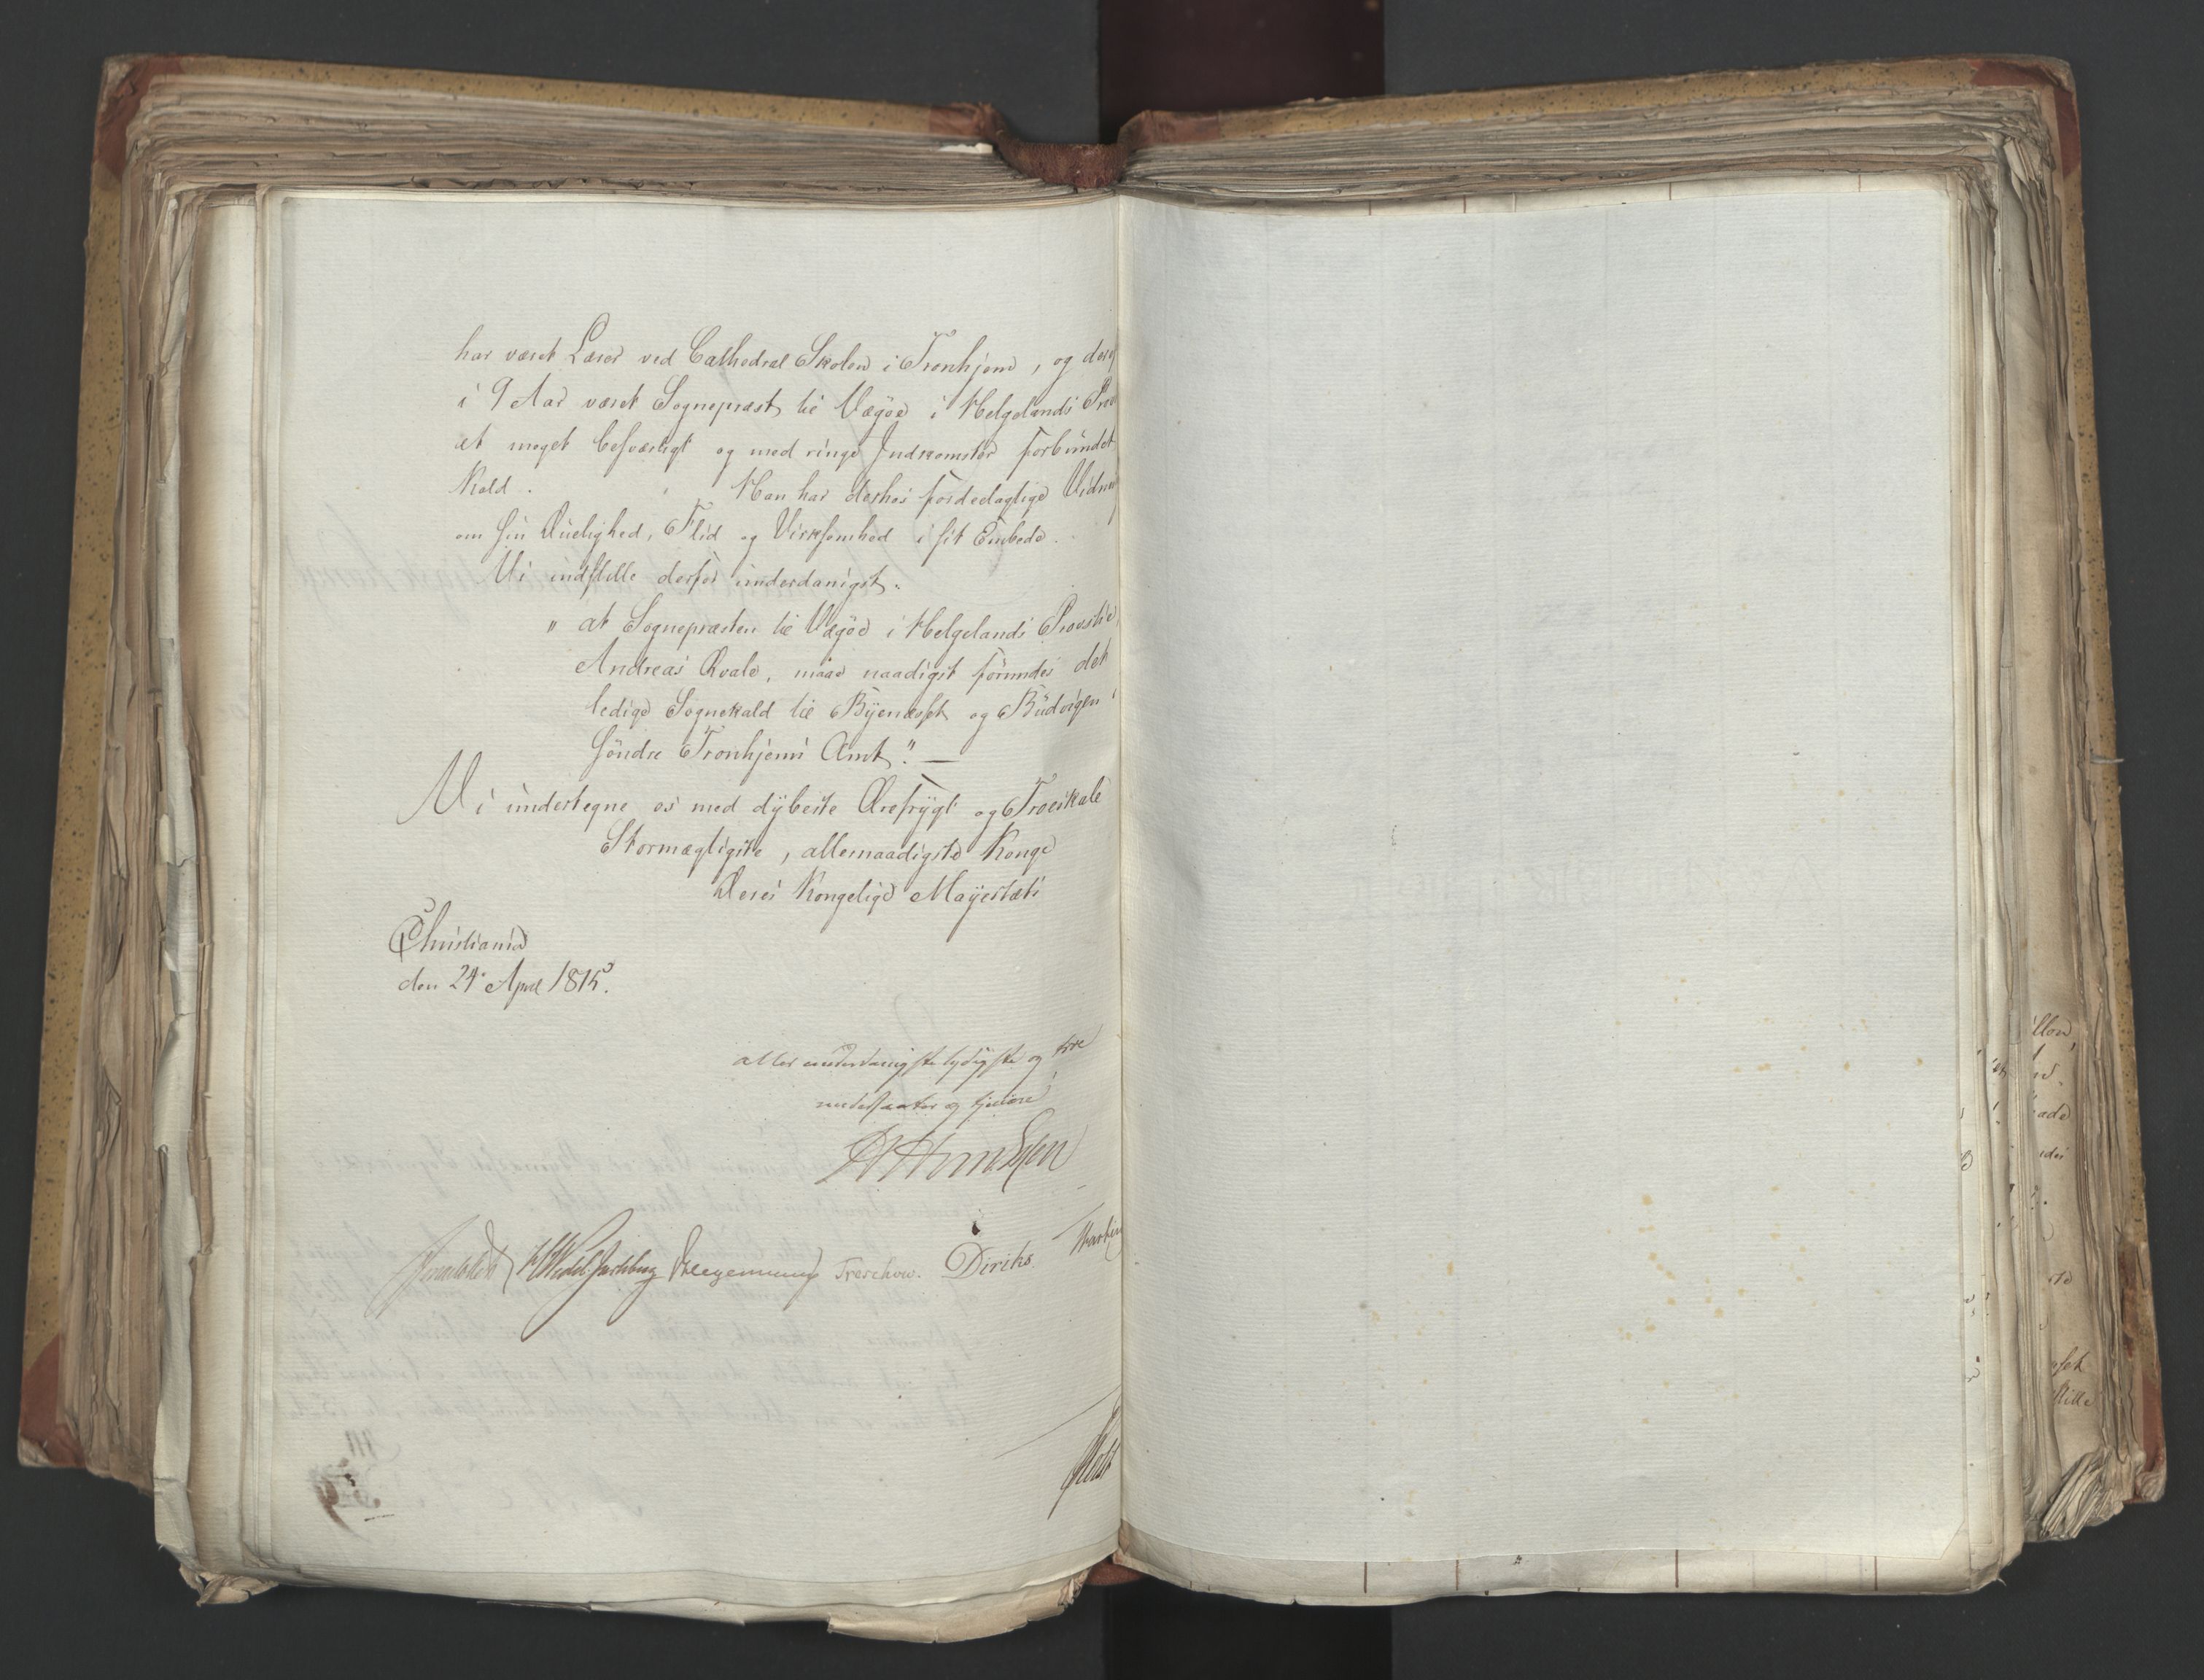 har været Lærer ved Cathedral Skolen i Tronhjem, og der
i 9 Aar været Sognepræst til Vægøe i Helgelands Pro
et meget besværligt og med ringe Indkomster forbundet
Kald. Han har derhos fordelagtige Vidne
om sin Duelighed, Flid og Virksomhed i sit Embede.
Vi indstille derfor underdanigst:
" at Sognepræsten til Vægøe i Helgelands Provstie,
Andreas Qvale, maae naadigst forundes det
ledige Sognekald til Byenæsset og Budvigen i
söndre Tronhjems Amt." —
Vi undertegne os med dybeste Ærefrygt og Troeskab
Stormægtigste, allernaadigste Konge
Deres Kongelige Mayestæts
Christiania
den 24 April 1815.
allerunderdanigste lydigste og troe
undersaatter og tjenere
M Aall
Sommerhielm HWedel Jarlsberg Hegermann Treschow. Diriks
Holst